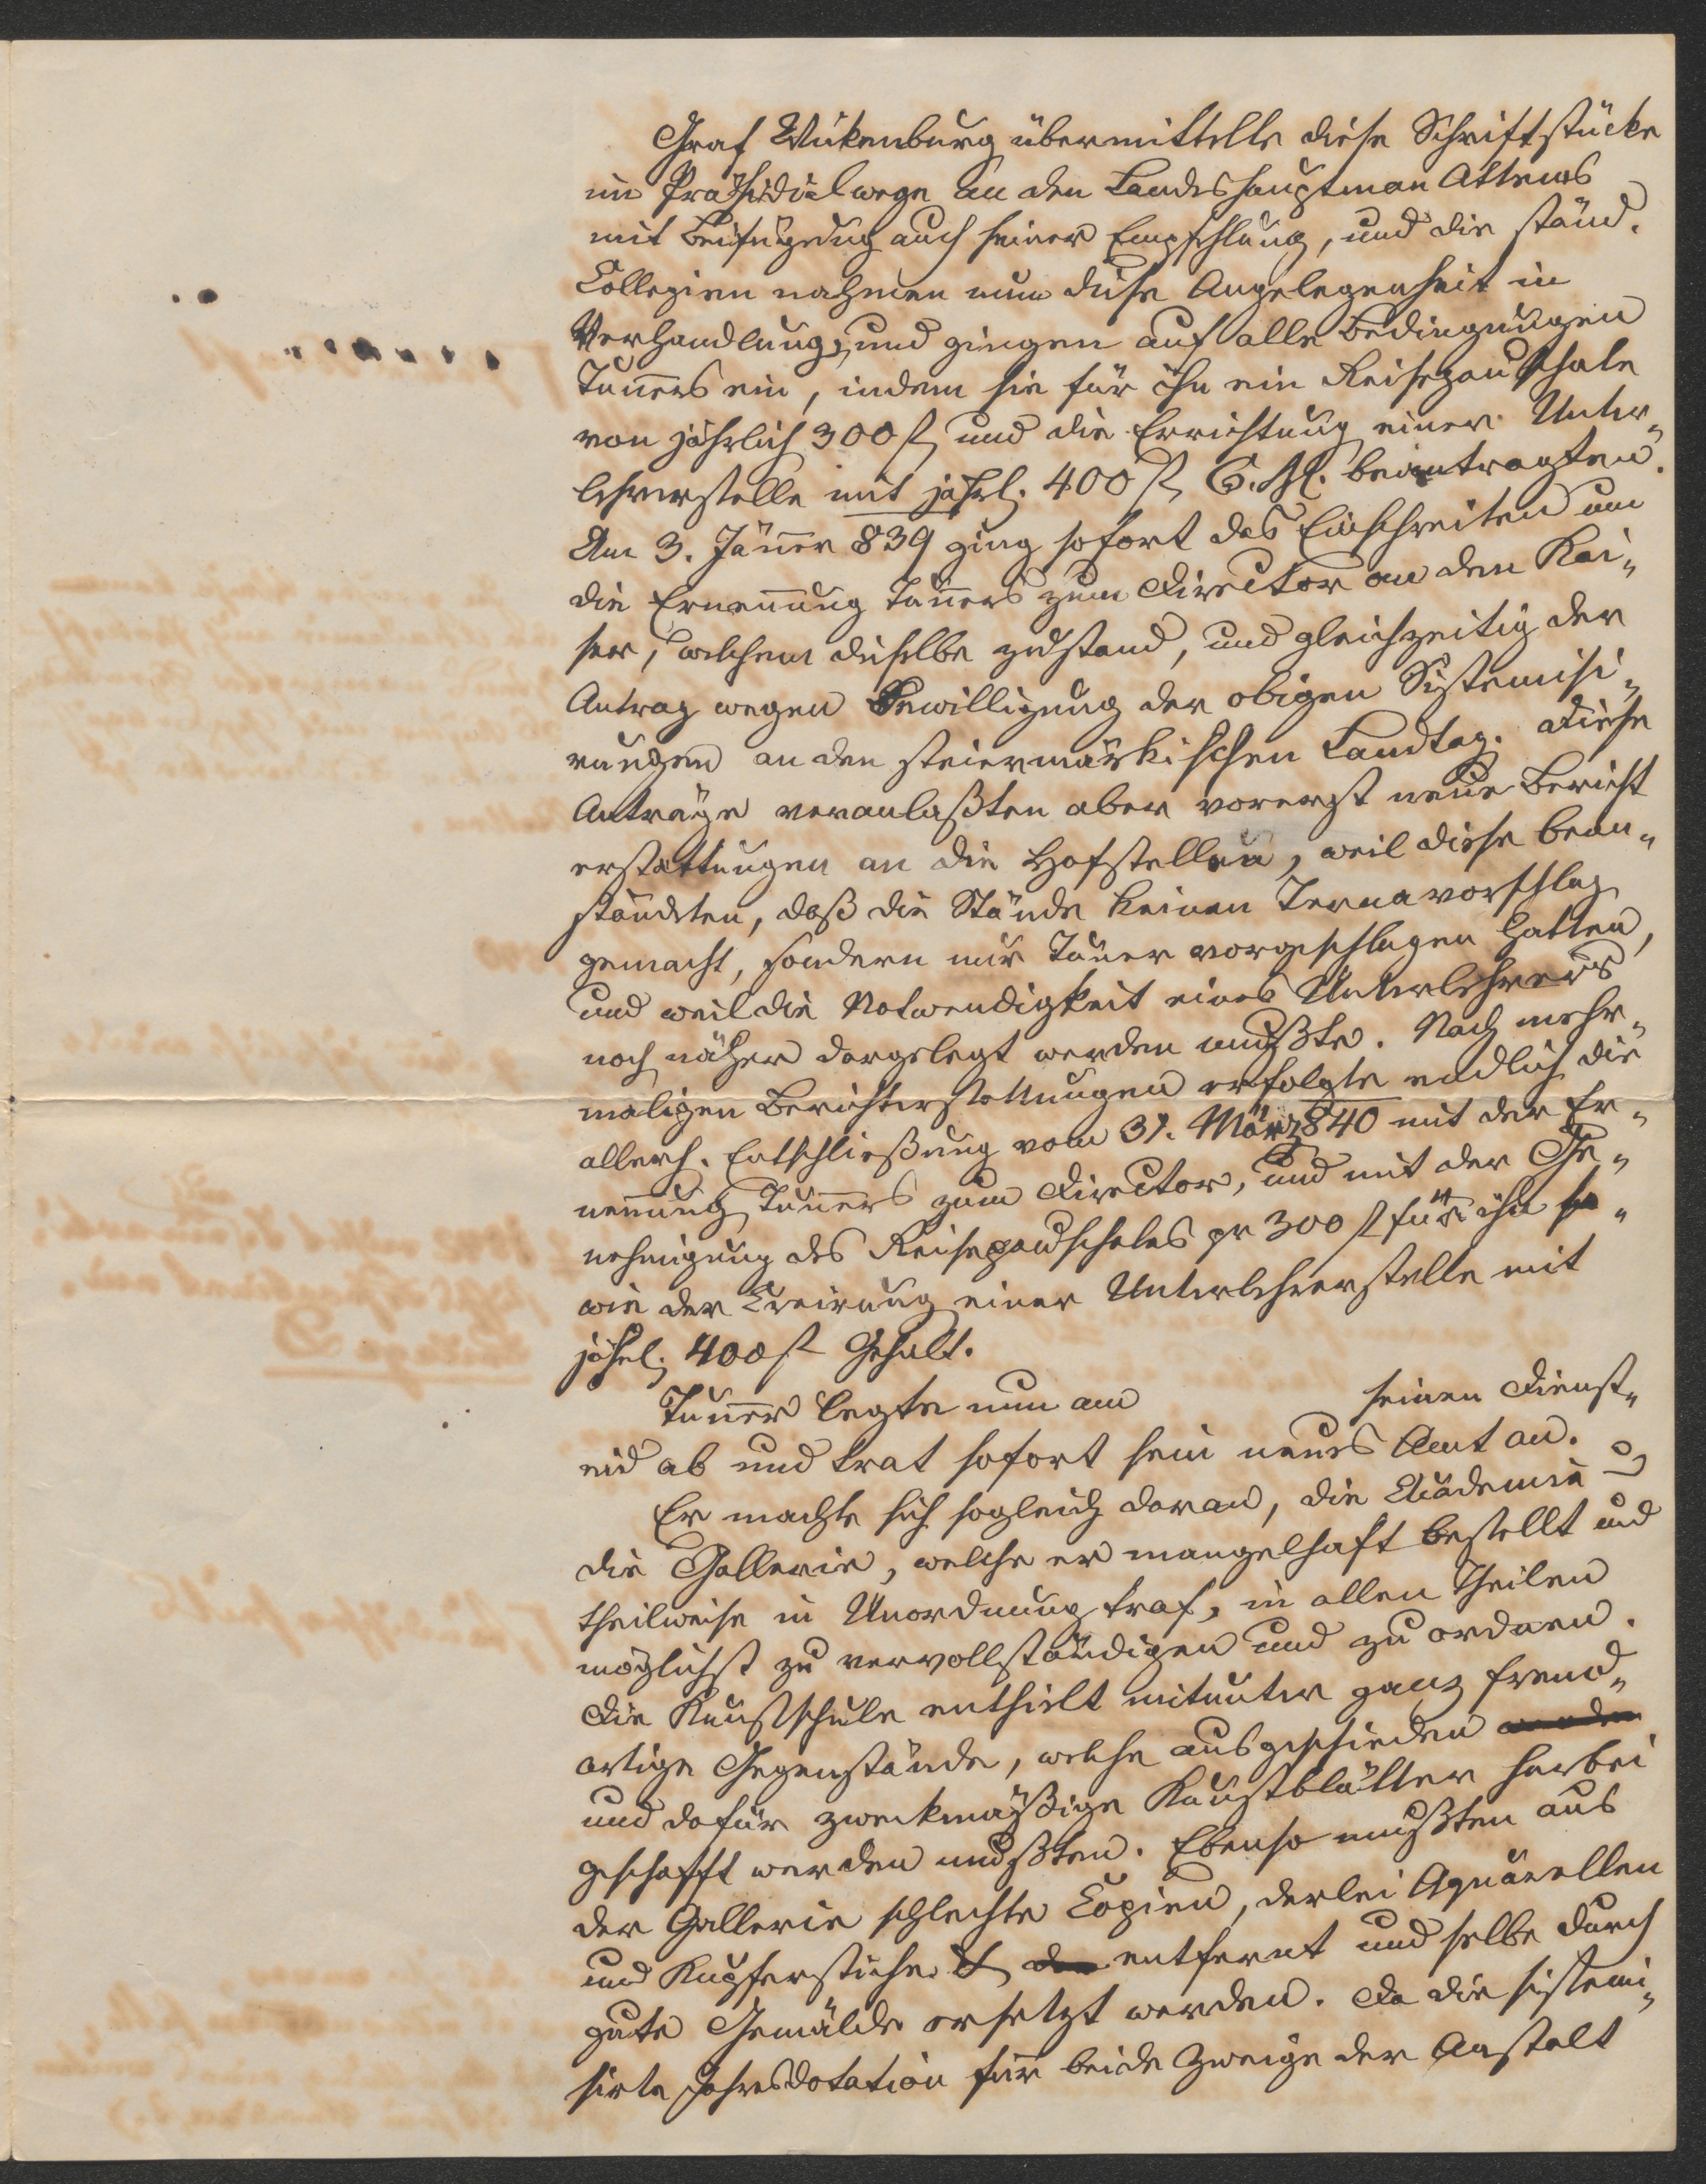 Graf Wickenburg übermittelte diese Schriftstücke
im Präsidialwege an den Landeshauptman Attems
mit Beifügung auch seiner Empfehlung, und die ständ.
Collegien nahmen nun diese Angelegenheit in
Verhandlung, und gingen auf alle Bedingungen
Tuners ein, indem sie für ihn ein Reisepauschale
von jährlich 300 fl und die Errichtung einer Unter„
lehrerstelle mit jährl. 400 fl C. M. beantragten.
Am 3. Jäner 839 ging sofort das Einschreiten um
die Ernenung Tuners zum Director an den Kai„
ser, welchem dieselbe zustand, und gleichzeitig der
Antrag wegen Bewilligung der obigen Sistemisi„
rungen an den steiermärkischen Landtag. Diese
Anträge veranlaßten aber vorerst neue Bericht
erstattungen an die Hofstellen, weil diese bean„
ständeten, daß die Stände keinen Ternavorschlag
gemacht, sondern nur Tuner vorgeschlagen hatten,
und weil die Notwendigkeit eines Unterlehrers
noch näher dargelegt werden mußte. Nach mehr„
maligen Berichterstattungen erfolgte endlich die
allerh. Entschließung vom 31. März 840 mit der Er„
nenung Tuners zum Director, und mit der Ge„
nehmigung des Reisepauschales pr 300 fl für ihn so„
wie der Creirung einer Unterlehrerstelle mit
jährl. 400 fl Gehalt.
Tuner legte nun am seinen Dienst„
eid ab und trat sofort sein neues Amt an.
Er machte sich sogleich daran, die Academie u
die Gallerie, welche er mangelhaft bestellt und
theilweise in Unordnung traf, in allen Theilen
möglichst zu vervollständigen und zu ordnen.
Die Kunstschule enthielt mitunter ganz fremd„
artige Gegenstände, welche ausgeschieden werden
und dafür zweckmäßige Kunstblätter herbei
geschafft werden mußten. Ebenso mußten aus
der Gallerie schlechte Copien, derlei Aquarellen
und Kupferstiche entfernt und selbe durch
gute Gemälde ersetzt werden. Da die sistemi„
sirte Jahresdotation für beide Zweige der Anstalt